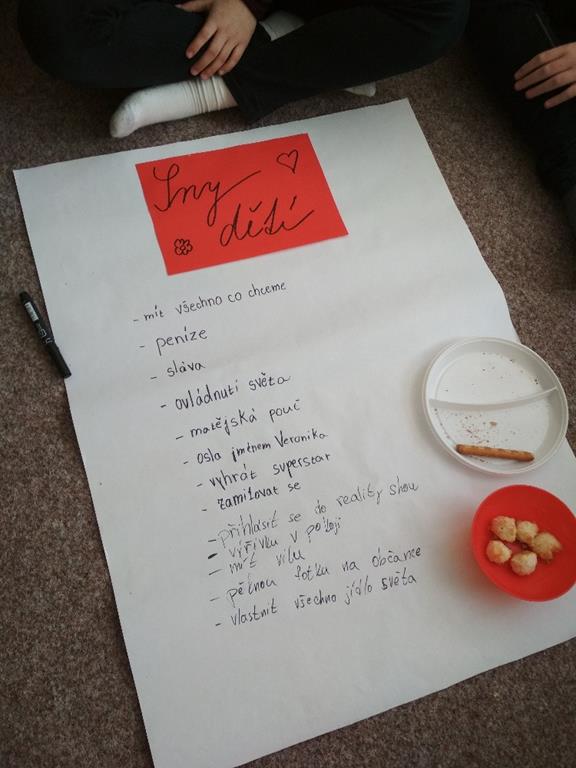 Sny
dětí
- mít všechno co chceme
- peníze
- sláva
- ovládnutí světa
- matějská pouť
- osla jménem Veronika
- vyhrát superstar
- zamilovat se
- přihlásit se do reality shou
- výřivku v pokoji
- mít vilu
- pěknou fotku na občance
- vlastnit všechno jídlo světa